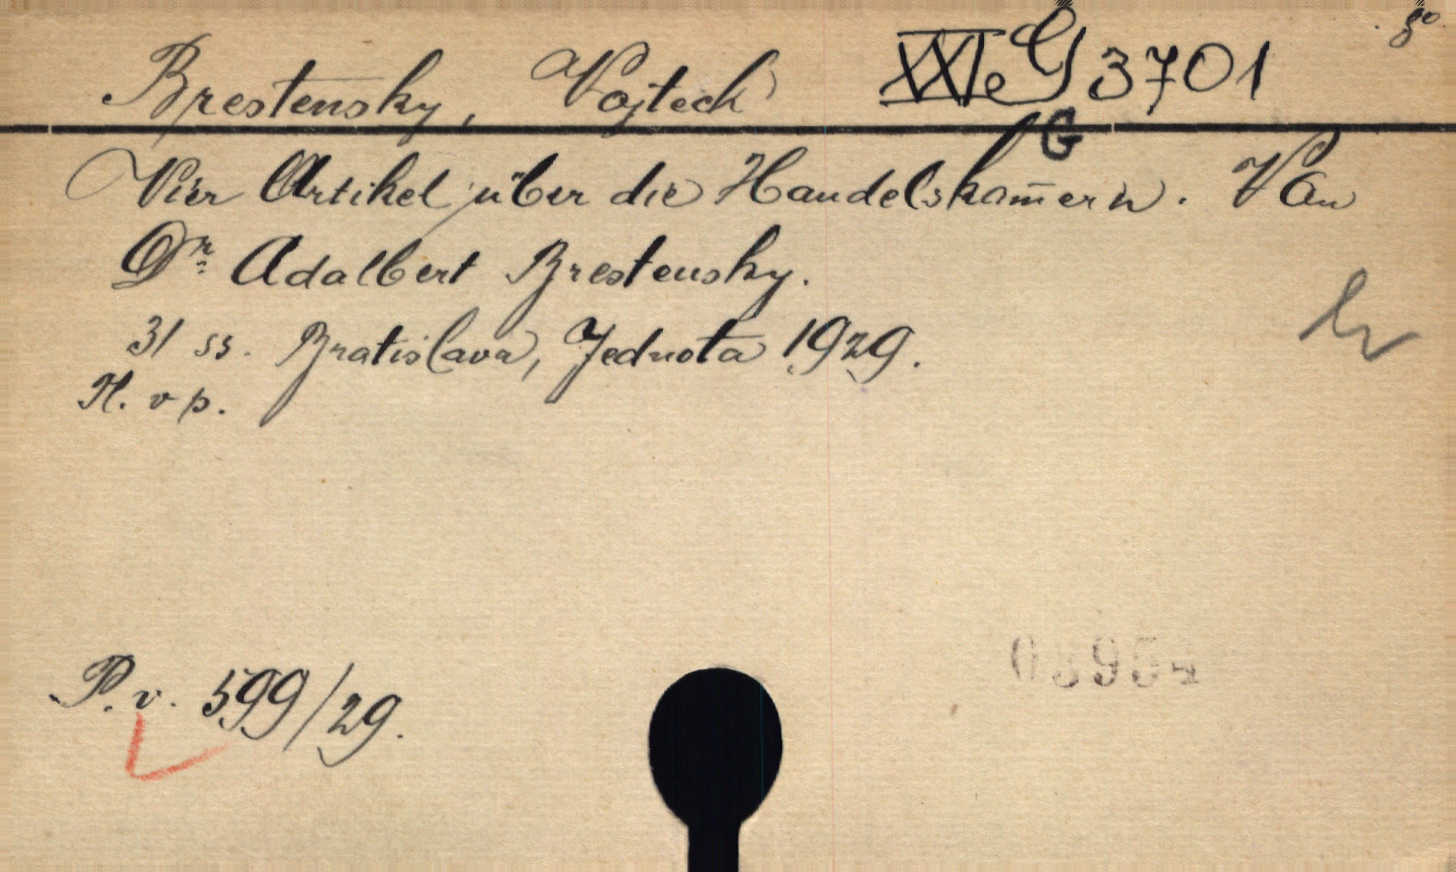 8°
Brestensky, Vojtech XXIe G 3701
G
Vier Artikel über die Handelskam̄ern. Von
Dr Adalbert Brestensky.
31 ss. Bratislava, Jednota 1929.
H. v p.
P. v. 599/29.
03954